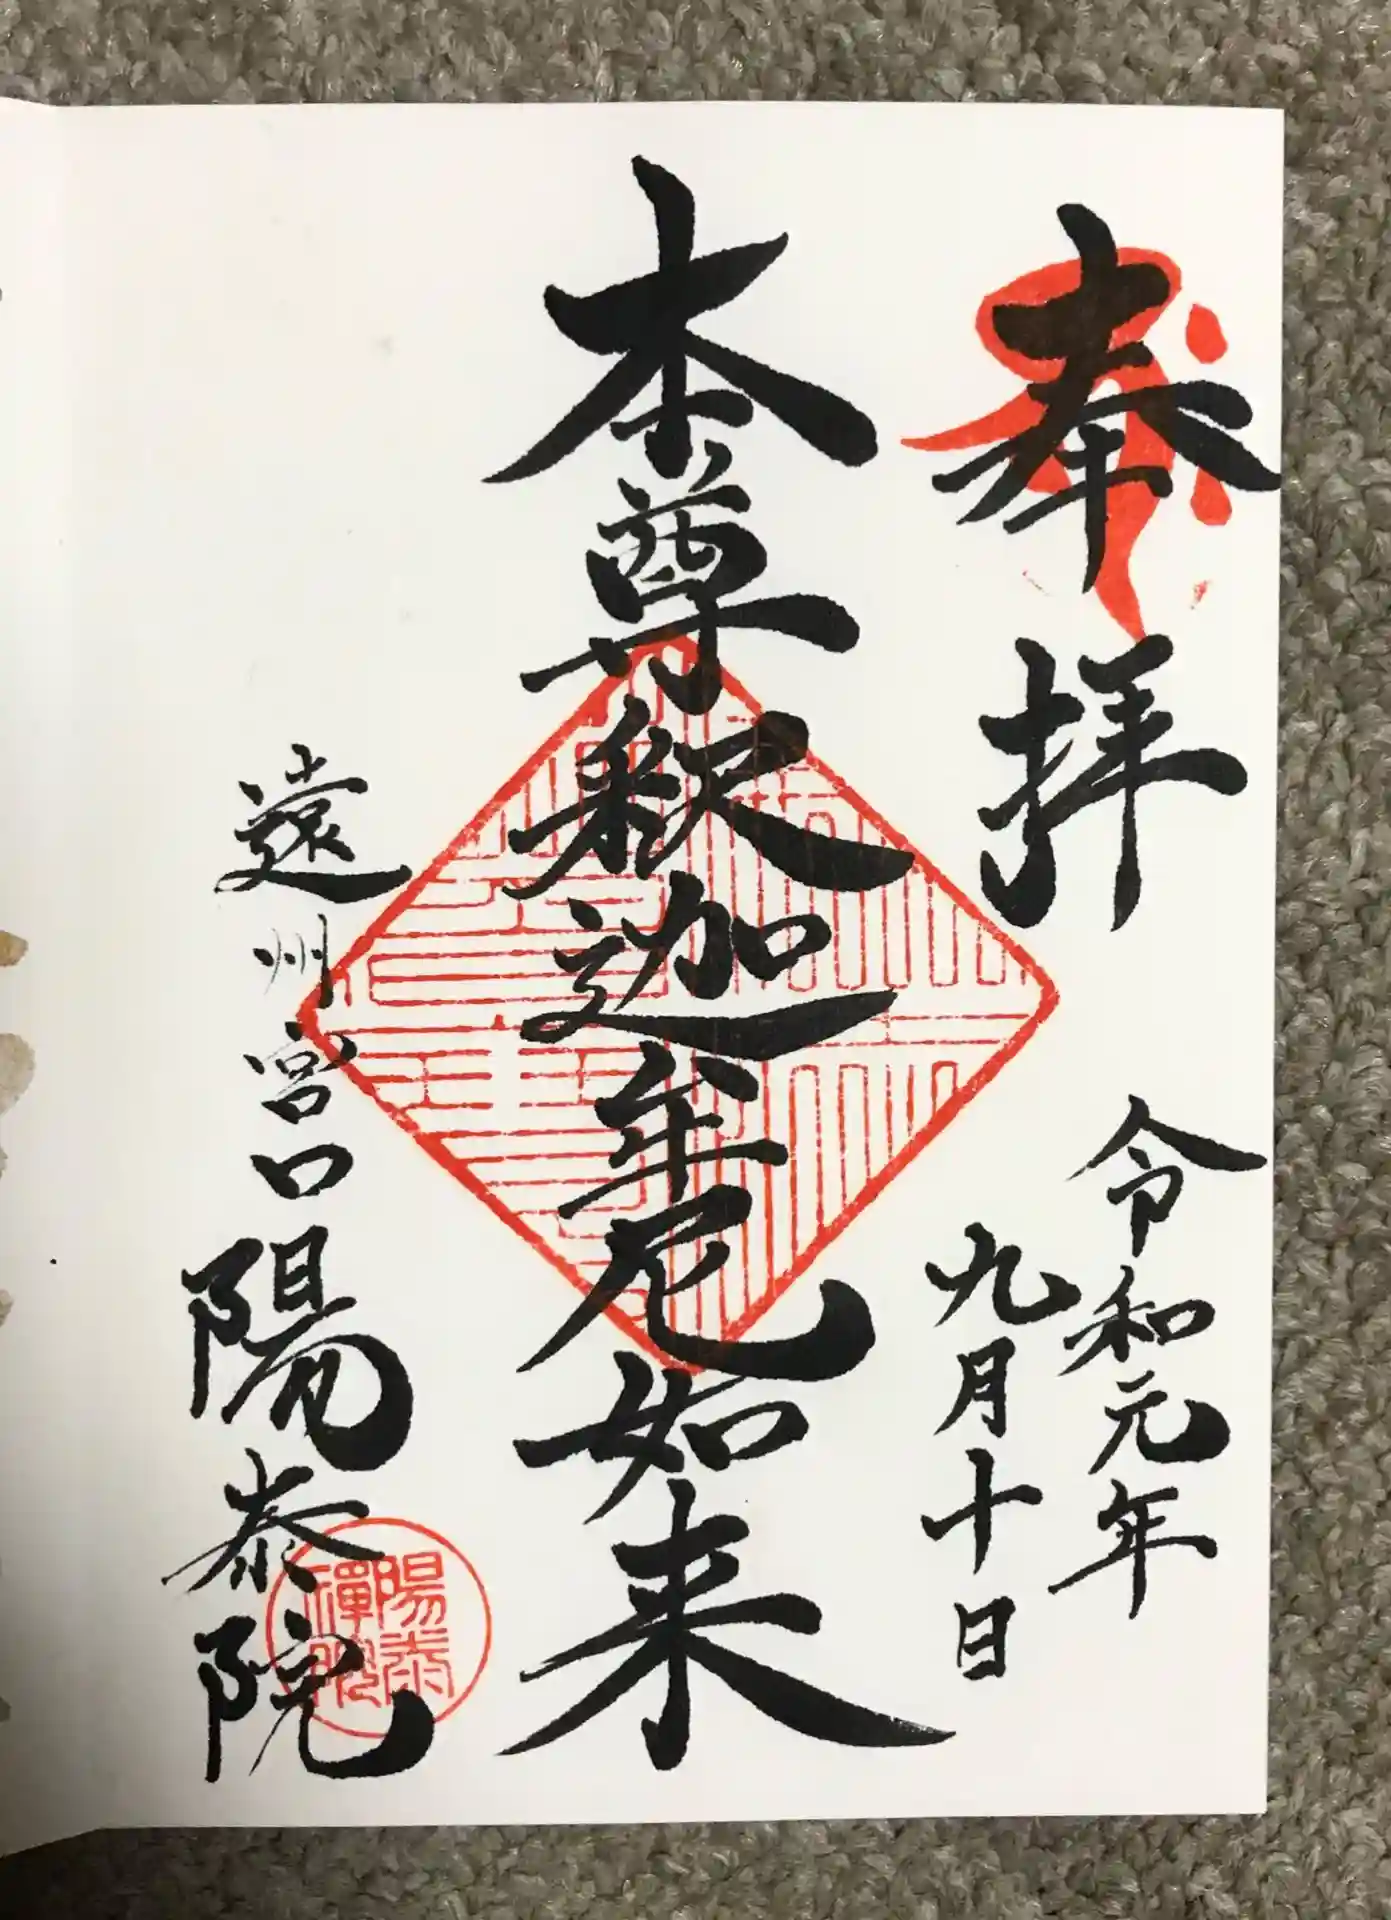 奉拝
令和元年
九月十日
本尊釈迦牟尼如来
遠州宮口陽泰院
陽泰
禅院